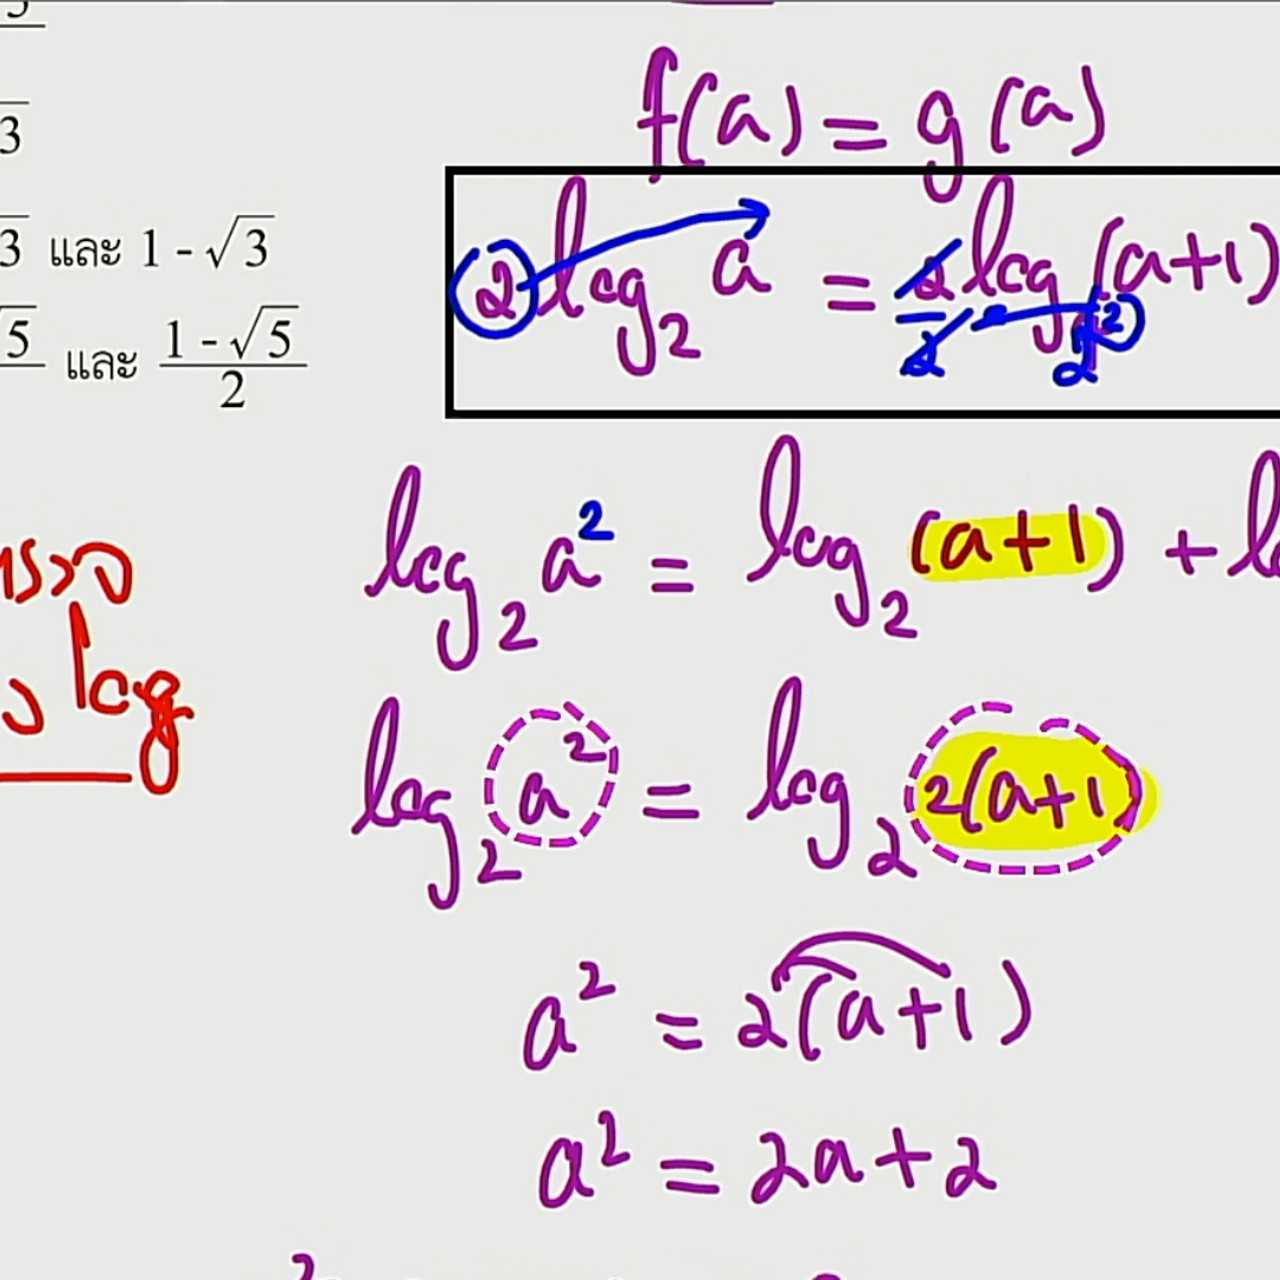 5
3
3 และ 1 - √3
5 และ (1 - √5)/2
log
f(a) = g(a)
2 log₂ a = 2/2 log (a+1)
log₂ a² = log₂ (a+1) + l
log₂ a² = log₂ 2(a+1)
a² = 2(a+1)
a² = 2a + 2
2